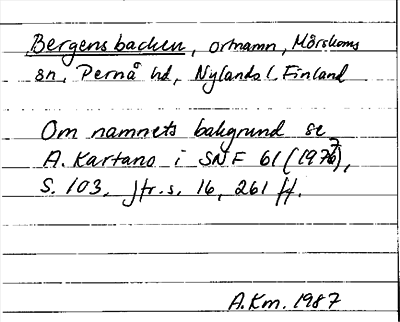 Bergensbacken, ortnamn, Mörskoms
sn, Pernå hd, Nylands l. Finland
Om namnets bakgrund se
A. Kartano i SNF 61 (1976),
S. 103. Jfr. s. 16, 261 ff.
A.Km. 1987